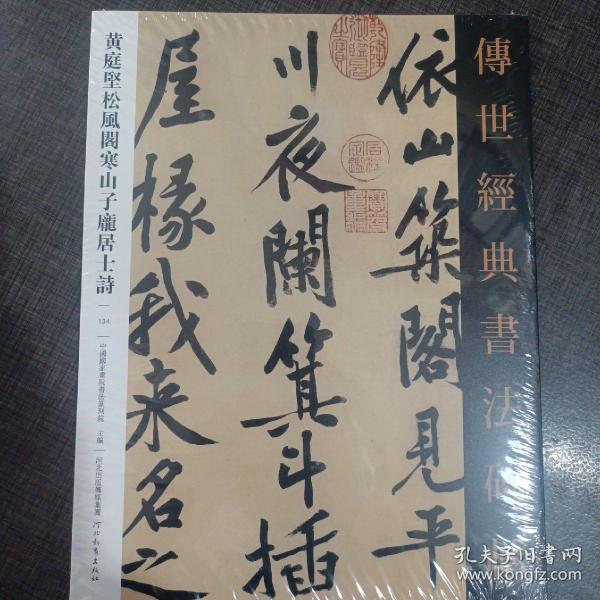 傳世經典書法碑
依山築閣見平
川夜闌箕斗插
屋椽我来名之
黄庭堅松風閣寒山子龐居士詩
134
中國國家畫院書法篆刻院 主編
河北出版傳媒集團
河北教育出版社
孔夫子旧书网
www.kongfz.com